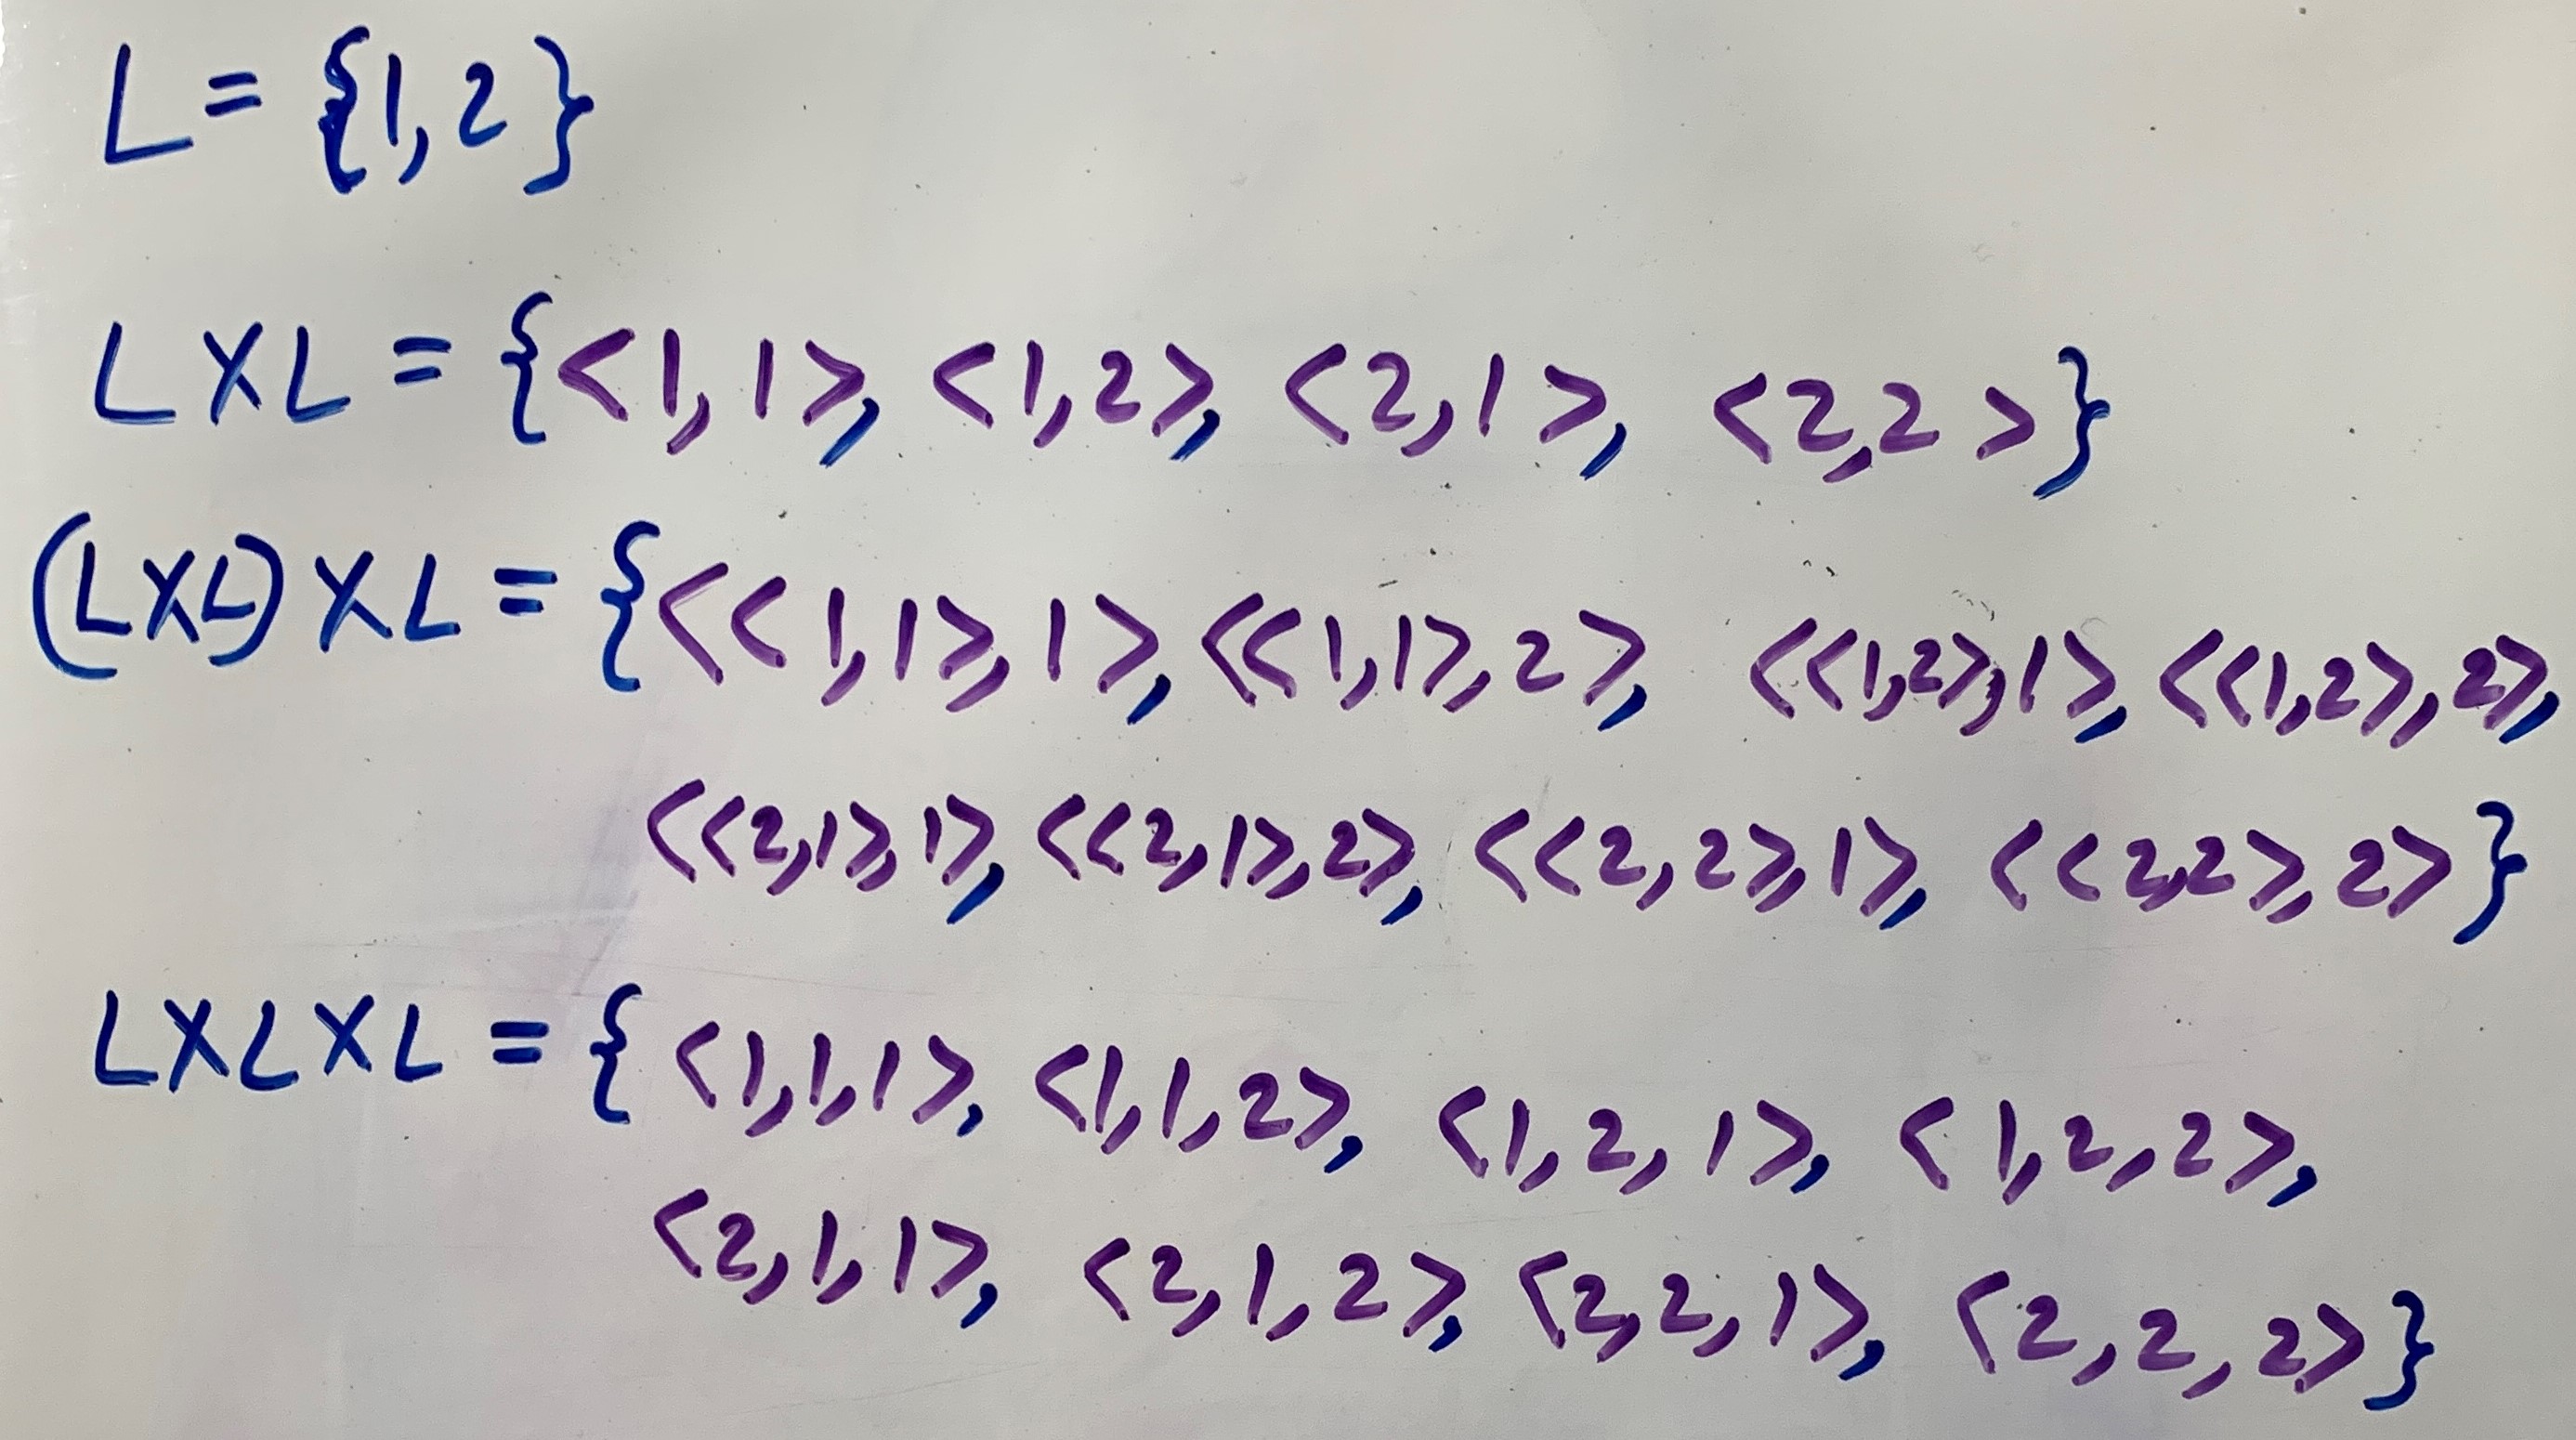 L = {1,2}
L X L = {<1,1>, <1,2>, <2,1>, <2,2>}
(LXL) X L = {<<1,1>,1>, <<1,1>,2>, <<1,2>,1>, <<1,2>,2>,
<<2,1>,1>, <<2,1>,2>, <<2,2>,1>, <<2,2>,2>}
L X L X L = {<1,1,1>, <1,1,2>, <1,2,1>, <1,2,2>,
<2,1,1>, <2,1,2>, <2,2,1>, <2,2,2>}